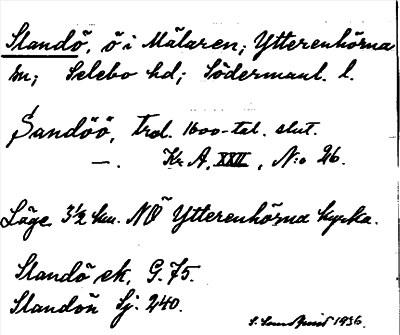 Slandö, ö i Mälaren; Ytterenhörna
sn; Selebo hd; Södermanl. l.
Sandöö, trol. 1600-tal. slut.
—. Kr. A. XXII, N:o 26.
Läge 3½ km. NÖ Ytterenhörna kyrka.
Slandö ek, G.75.
Slandön Sj. 240.
1936.